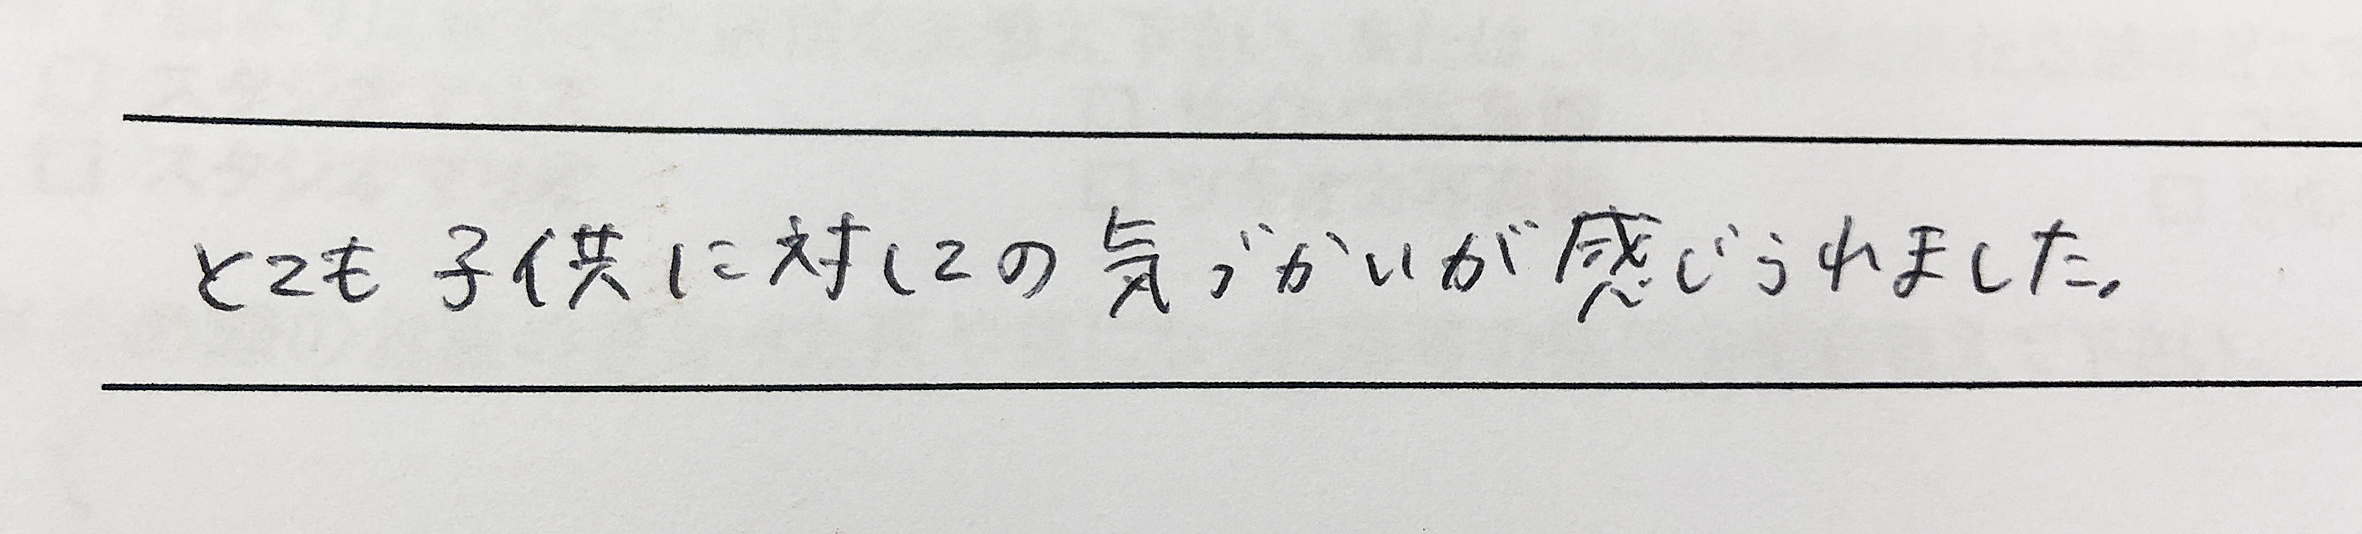 とても子供に対しての気づかいが感じられました。